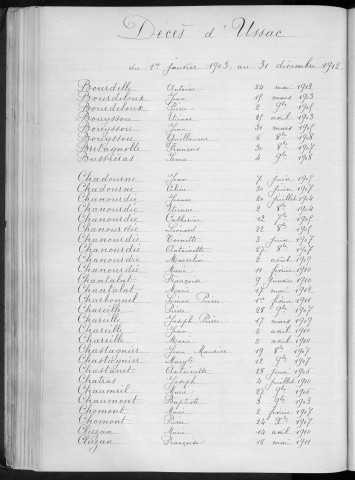 Décès d'Ussac
du 1er janvier 1903 au 31 décembre 1912
Bourdelle Antoine 24 mai 1912
Bourdeloux Jean 15 mars 1903
Bourdeloux Pierre 2 9bre
Bouyssou Etienne 15 avril 1903
Bouyssou Jean 31 mars
Bouyssou Guillaume 5 8bre 1908
Bretagnolle François 30 8bre 1907
Bussières 4 9bre 1908
Chadourne Jean 7 juin
Chadourne 30 juin 1907
Chanourdie 20 juillet 1904
Chanourdie Etienne 2 8bre 1904
Chanourdie Catherine 12 9bre
Chanourdie Léonard 22 8bre
Chanourdie 3 juin 1907
Chanourdie Antoinette 27 8bre 1907
Chanourdie 2 août 1909
Chanourdie Marie 11 février 1910
Chantalat Françoise 9 janvier 1910
Chantalat Marie 17 mai 1912
Charbonnel Pierre 1er février 1911
Chareille Pierre 28 9bre 1907
Chareille Joseph Pierre 17 mars 1909
Chareille Jean 5 avril 1910
Chareille Marie 5 avril 1910
Chastagnier Jean Maurice 19 8bre
Chastagnier Margte 12 9bre 1907
Chastanet Antoinette 28 juin
Chatras Joseph 4 juillet 1910
Chaumeil Marie 27 9bre
Chaumont Baptiste 3 9bre 1903
Chomont Marie 2 février 1907
Chomont Pierre 24 Xbre 1907
Cluzan Marie 14 avril 1910
Cluzan Françoise 18 mai 1911